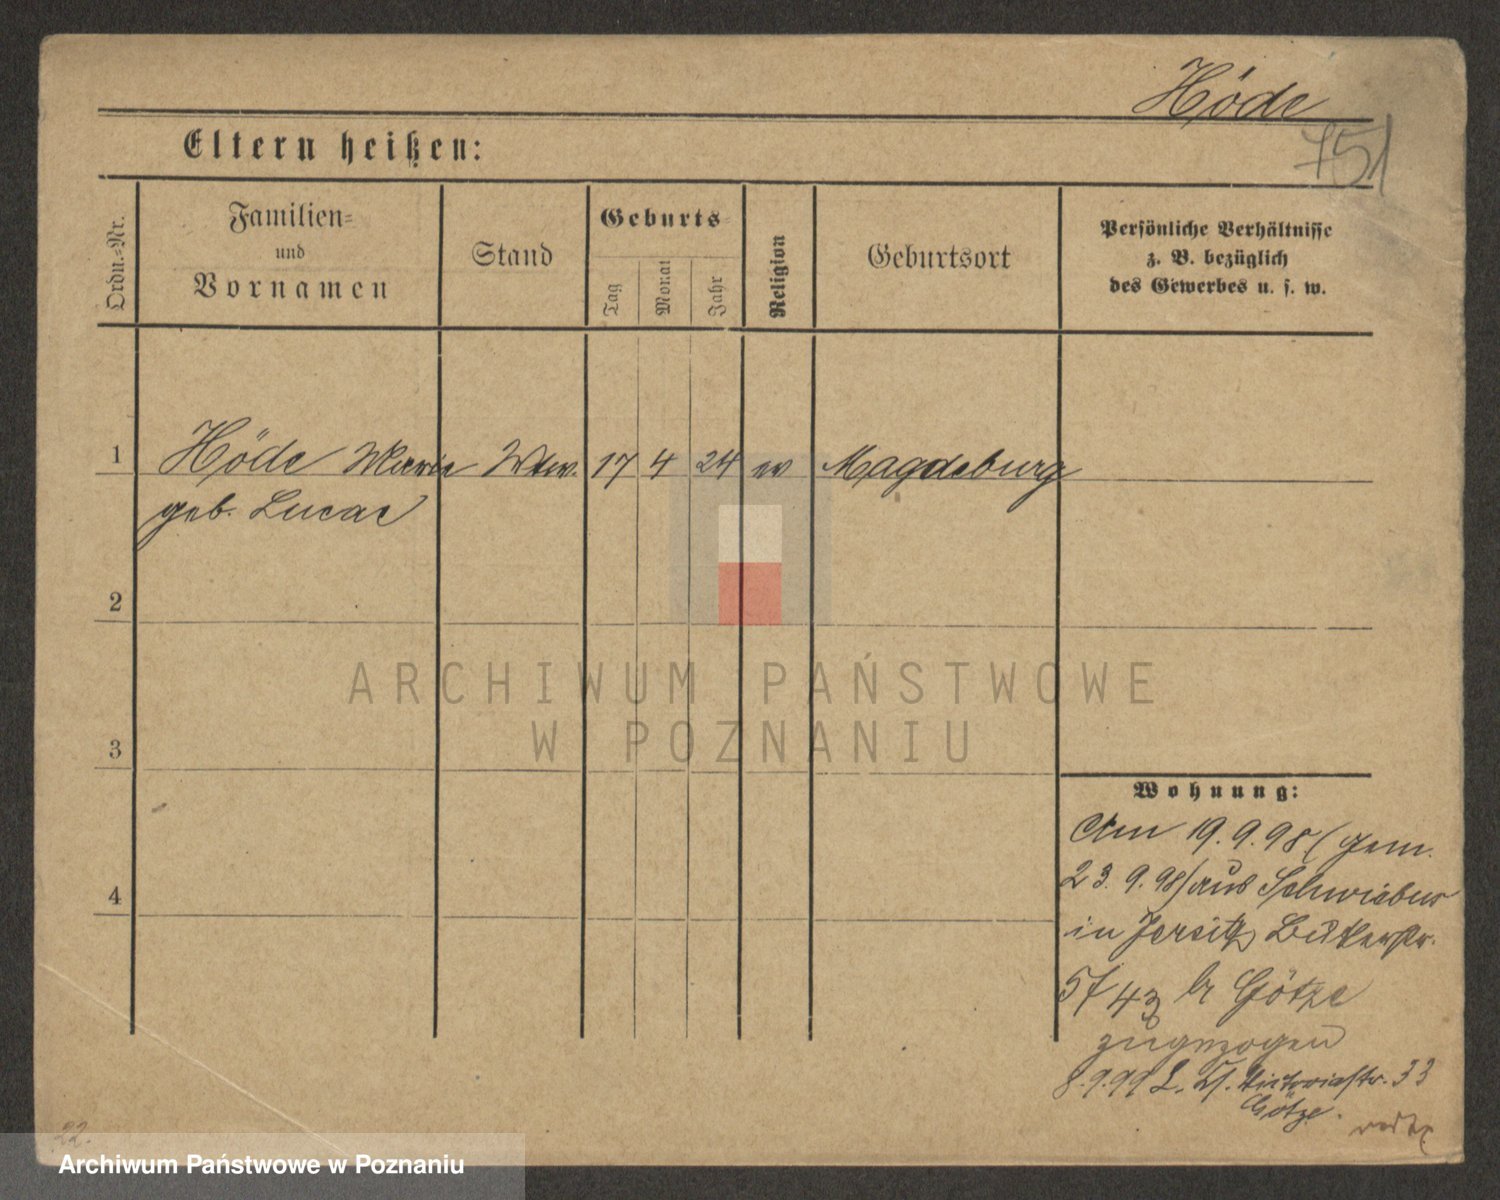 Höde
751
Eltern heißen:
Ordn.=Nr.
Familien=
und
Vornamen
Stand
Geburts=
Tag
Monat
Jahr
Religion
Geburtsort
Persönliche Verhältnisse
z. B. bezüglich
des Gewerbes u. s. w.
1
Höde Marie Wtw. 17 4 24 ev Magdeburg
geb. Lucae
2
ARCHIWUM PAŃSTWOWE
W POZNANIU
3
Wohnung:
Am 19.9.98 (gem.
23.9.98) aus Schwiebus
in Jersitz
4
Götze
zugezogen
8.9.99 Victoriastr. 33
Götze.
22.
Archiwum Państwowe w Poznaniu